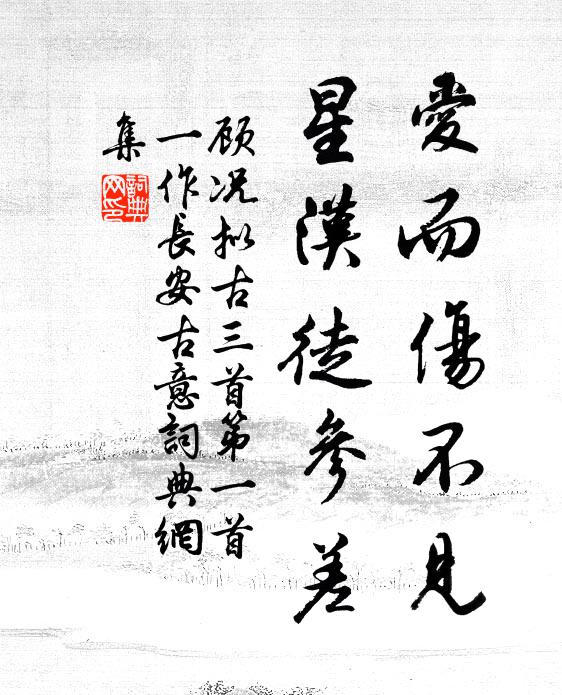 愛而傷不見
星漢徒參差
顾况拟古三首第一首
一作長安古意詞典網
集
詞典
网印